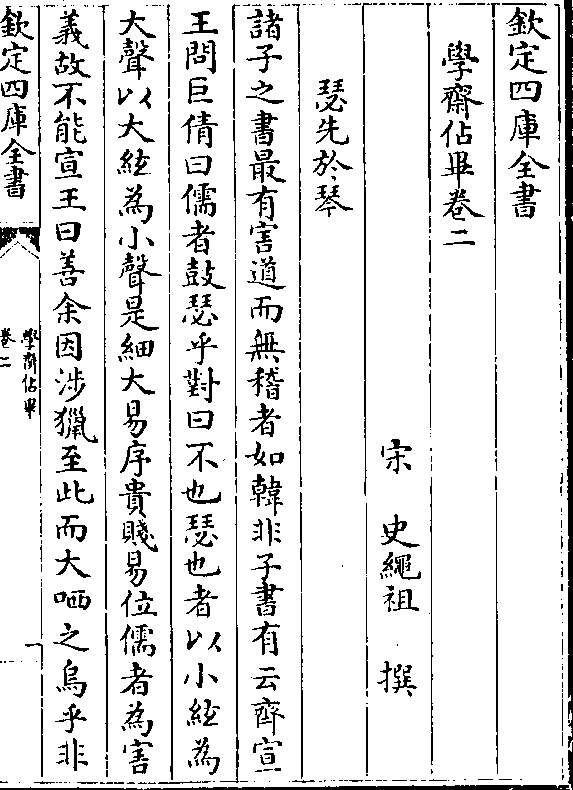 欽定四庫全書
學齋佔畢卷二
宋 史繩祖 撰
瑟先於琴
諸子之書最有害道而無稽者如韓非子書有云齊宣
王問巨倩曰儒者鼓瑟乎對曰不也瑟也者以小絃為
大聲以大絃為小聲是細大易序貴賤易位儒者為害
義故不能宣王曰善余因涉獵至此而大哂之烏乎非
欽定四庫全書
學齋佔畢
卷二
一